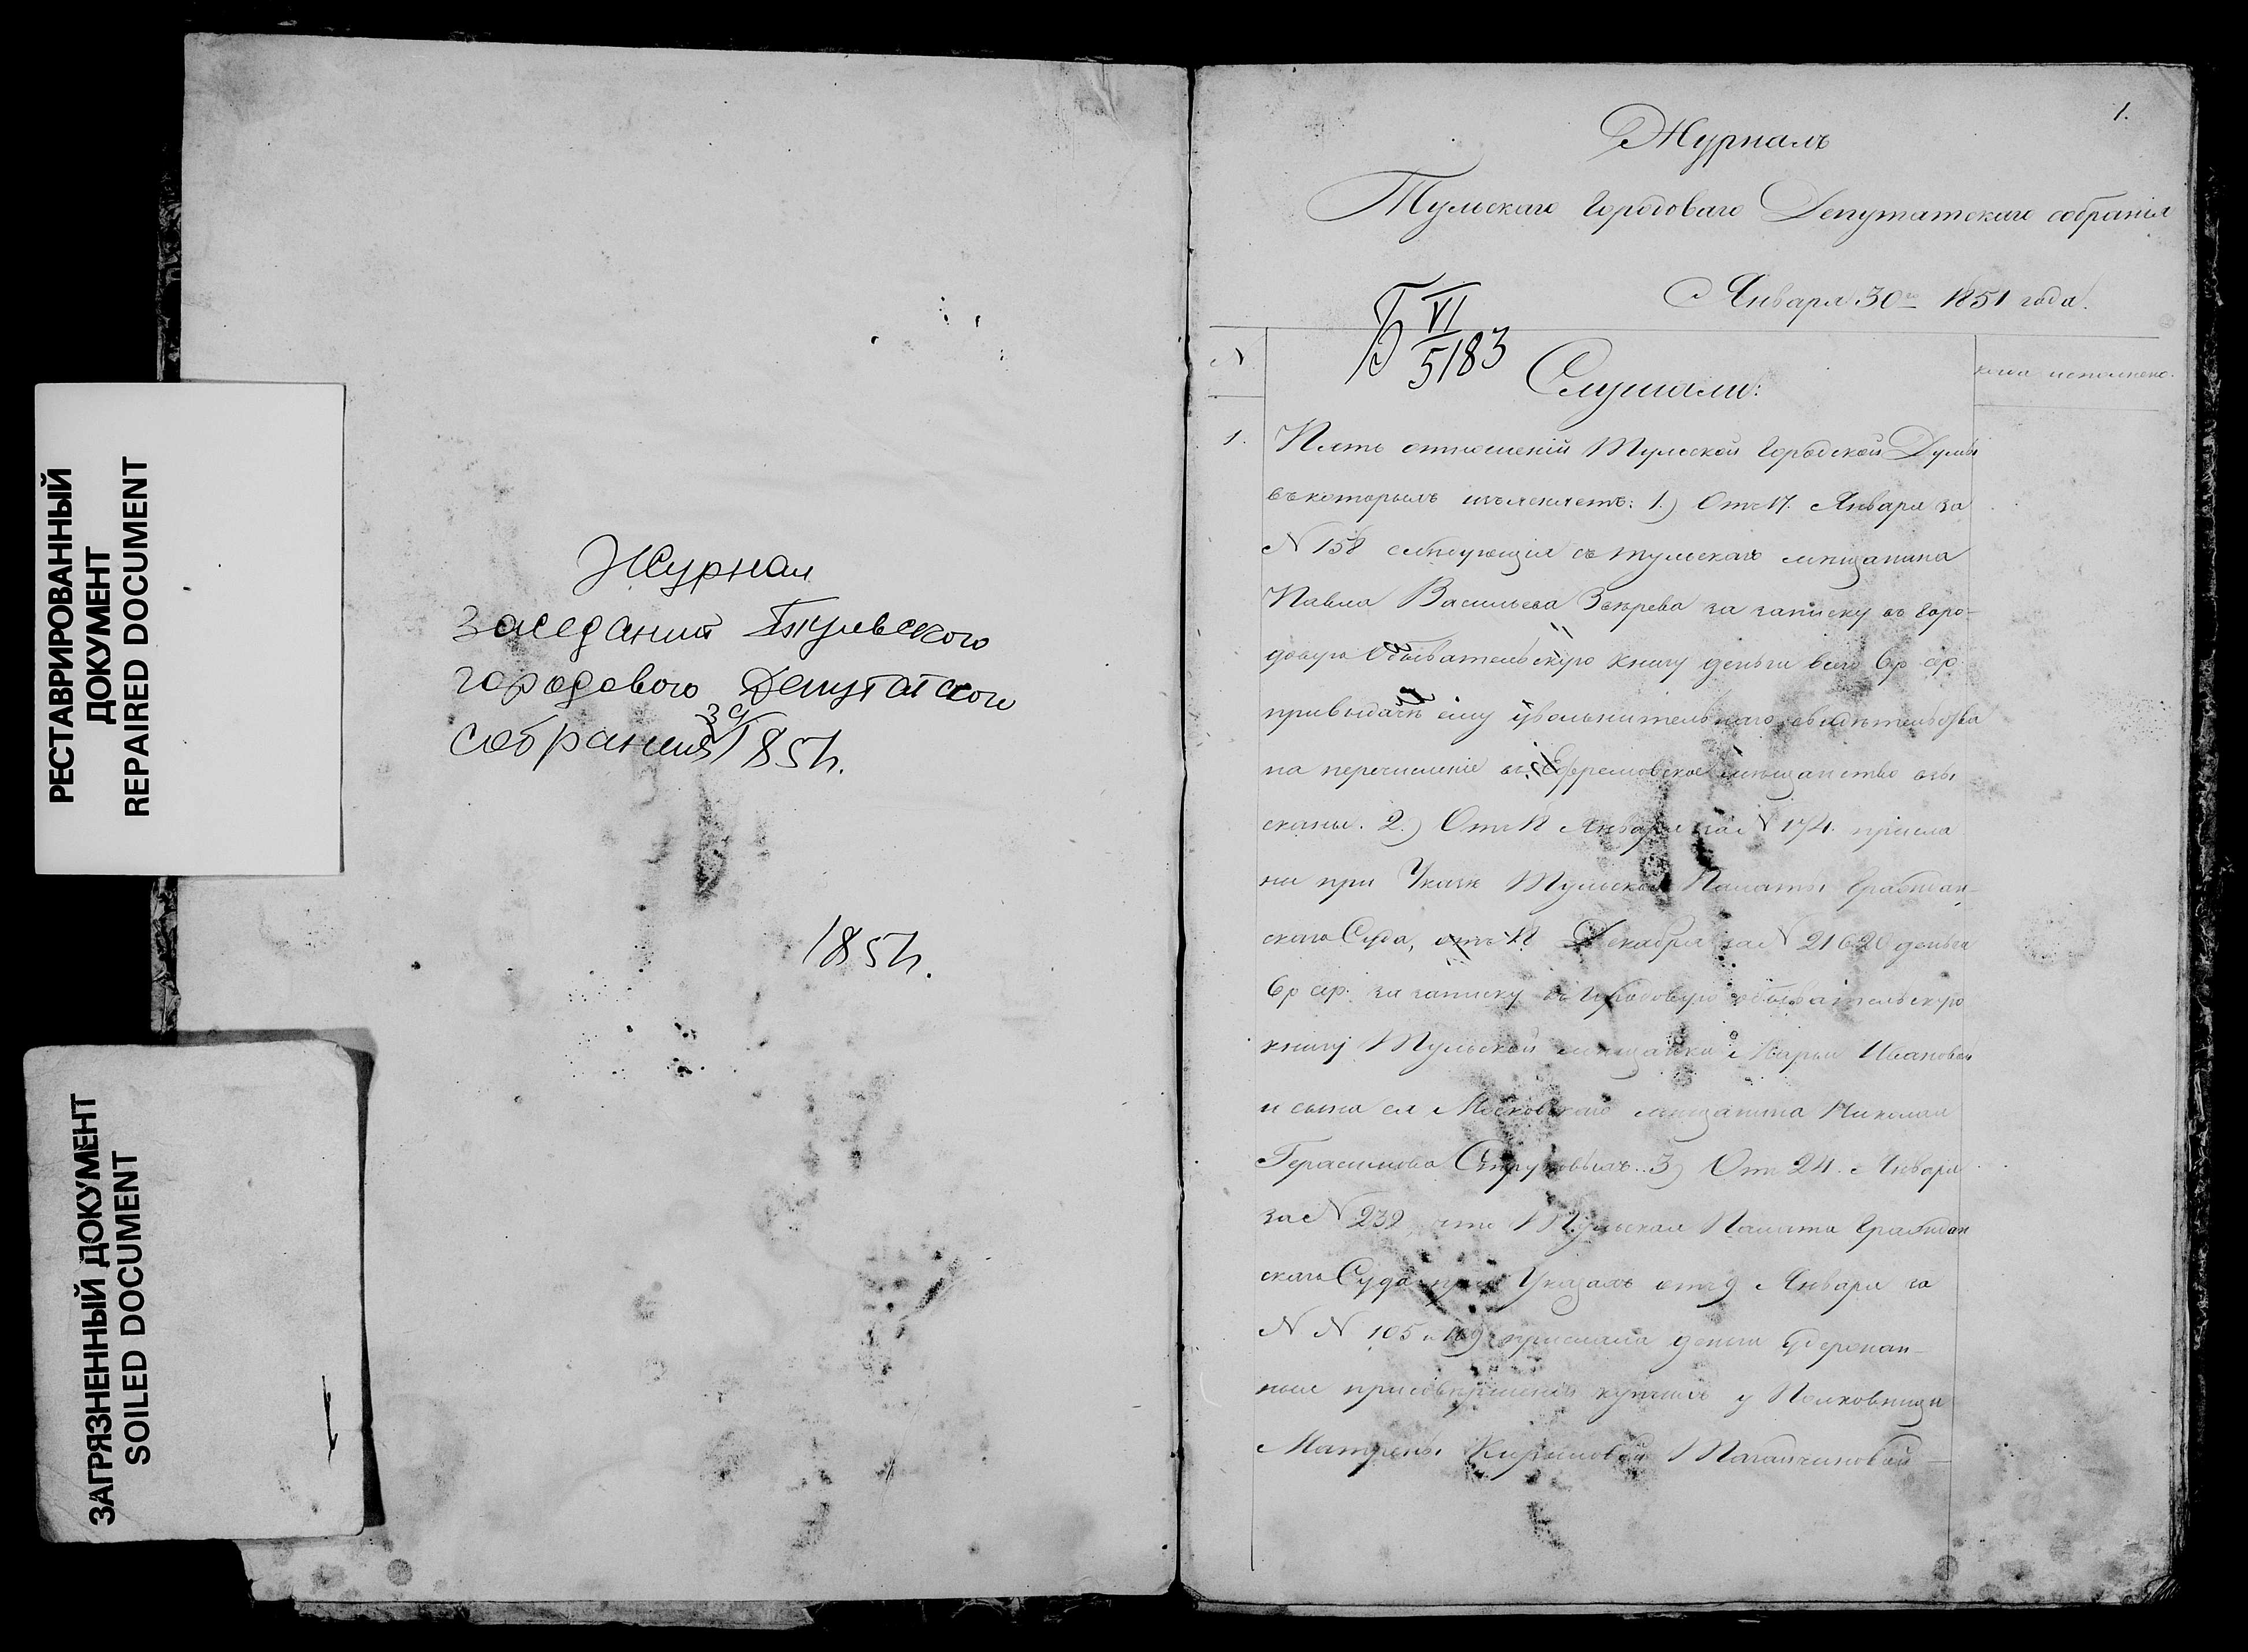 РЕСТАВРИРОВАННЫЙ
ДОКУМЕНТ
REPAIRED DOCUMENT
ЗАГРЯЗНЕННЫЙ ДОКУМЕНТ
SOILED DOCUMENT
Журнал
заседаний Тульского
городового Депутатского
собрания за 1851г.
1851г.
1.
Журналъ
Тульскаго Городоваго Депутатскаго собранія
Января 30го 1851 года.
Б VI
5183
N
Слушали:
когда исполнено.
1.
Пять отношеній Тульской Городской Думы
въ которыхъ изъясняетъ: 1.) Отъ 17. Января за
N 158 слѣдующія съ тульскаго мѣщанина
Павла Васильева Звѣрева за записку въ горо-
довую Обывательскую книгу деньги 6р ср.
при выдачѣ ему увольнительнаго свидѣтельства
на перечисленіе въ Ефремовское мѣщанство взы
сканы. 2.) Отъ Января за N 174. присла
ны при Указѣ Тульской Палаты Граждан-
скаго Суда, отъ 18 Декабря за N 21620 деньги
6р сер. за записку въ Городовую обывательскую
книгу Тульской мѣщанки Марьи Ивановой
и сына ея Московскаго мѣщанина Николая
Герасимова 3) Отъ 24. Января
за N 232, что Тульская Палата Граждан
скаго Суда при Указахъ отъ 9 Января за
N N 105 и 109 прислала деньги удержан-
ныя при совершеніи купчихъ у Полковницы
Матрены Кириловой